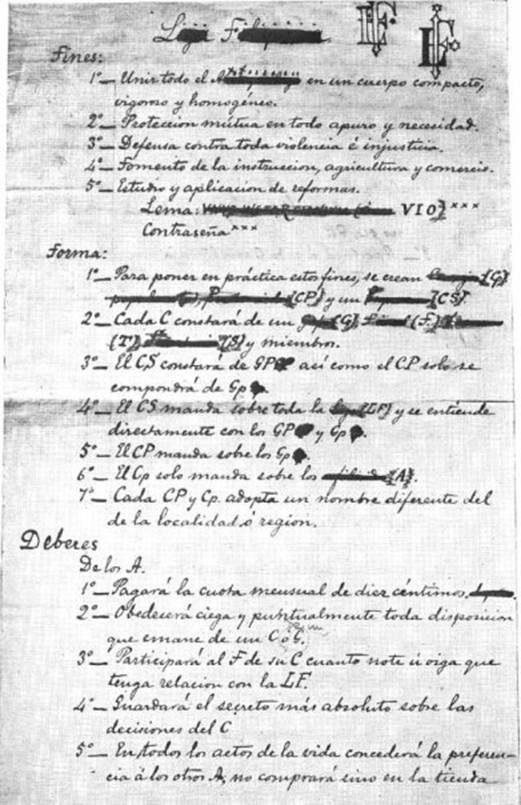 Liga Filipina
LF LF
Fines:
1º— Unir todo el en un cuerpo compacto,
vigoroso y homogéneo.
2º— Proteccion mútua en todo apuro y necesidad.
3º— Defensa contra toda violencia é injusticia.
4º— Fomento de la instruccion, agricultura y comercio.
5º— Estudio y aplicacion de reformas.
Lema: VIO} xxx
Contraseña xxx
Forma:
1º— Para poner en práctica estos fines, se crean {C}
{CP} y un {CS}
2º— Cada C constará de un {G}, {F.}
{T} {S} y miembros.
3º— El CS constará de GP así como el CP solo se
compondrá de Gp
4º— El CS manda sobre toda la {LF} y se entiende
directamente con los GP y Gp
5º— El CP manda sobre los Gp
6º— El Cp solo manda sobre los {A}.
7º— Cada CP y Cp. adopta un nombre diferente del
de la localidad ó region.
Deberes
De los A.
1º— Pagará la cuota mensual de diez céntimos.
2º— Obedecerá ciega y puntualmente toda disposicion
que emane de un C ó G.
3º— Participará al F de su C cuanto note ú oiga que
tenga relacion con la LF.
4º— Guardará el secreto más absoluto sobre las
decisiones del C
5º— En todos los actos de la vida concederá la preferen-
cia á los otros A; no comprará sino en la tienda